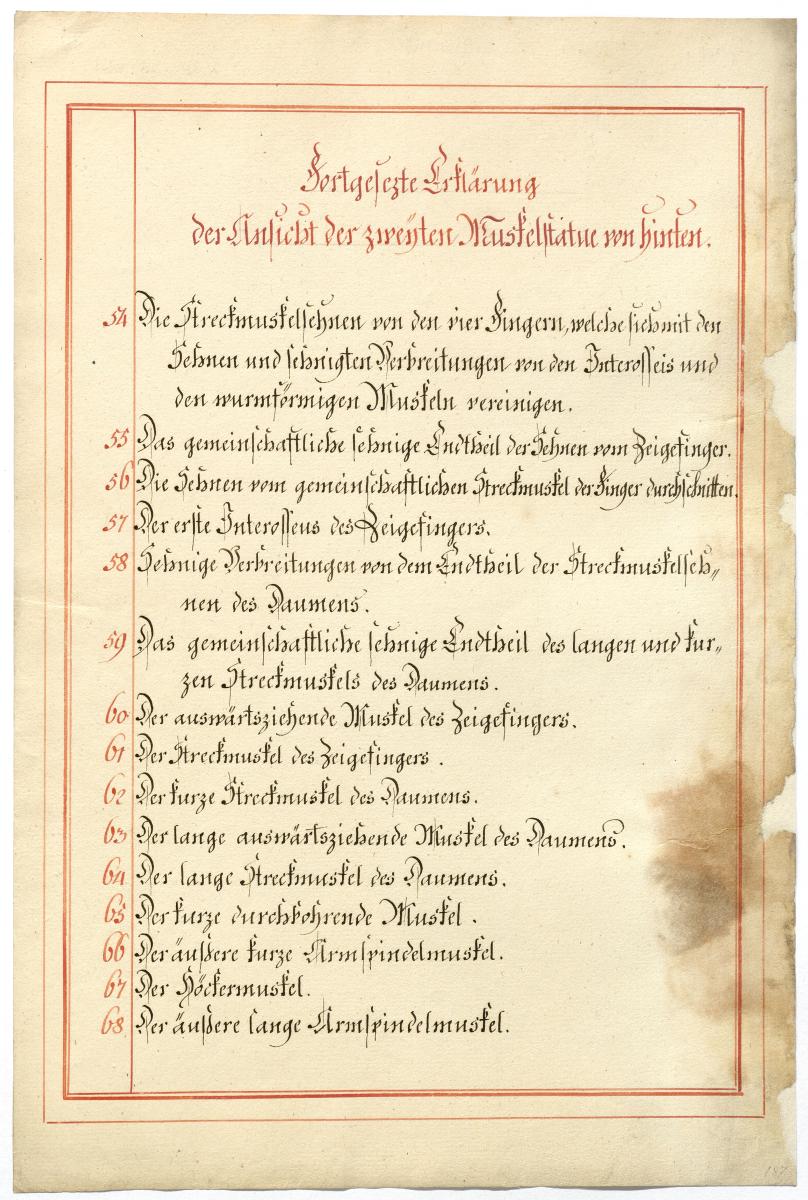 Fortgesezte Erklärung
der Ansicht der zweÿten Muskelstatue von hinten.
54 Die Streckmuskelsehnen von den vier Fingern, welche sich mit den
Sehnen und sehnigten Verbreitungen von den Interosseis und
den wurmförmigen Muskeln vereinigen.
55 Das gemeinschaftliche sehnige Endtheil der Sehnen vom Zeigefinger.
56 Die Sehnen vom gemeinschaftlichen Streckmuskel der Finger durchschnitten.
57 Der erste Interosseus des Zeigefingers.
58 Sehnige Verbreitungen von dem Endtheil der Streckmuskelseh„
nen des Daumens.
59 Das gemeinschaftliche sehnige Endtheil des langen und kur„
zen Streckmuskels des Daumens.
60 Der auswärtsziehende Muskel des Zeigefingers.
61 Der Streckmuskel des Zeigefingers.
62 Der kurze Streckmuskel des Daumens.
63 Der lange auswärtsziehende Muskel des Daumens.
64 Der lange Streckmuskel des Daumens.
65 Der kurze durchbohrende Muskel.
66 Der äußere kurze Armspindelmuskel.
67 Der Höckermuskel.
68 Der äußere lange Armspindelmuskel.
187